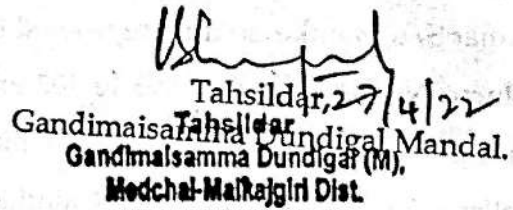 Tahsildar, 27/4/22
Gandimaisamma Dundigal Mandal.
Tahsildar
Gandimaisamma Dundigal (M),
Medchal-Malkajgiri Dist.